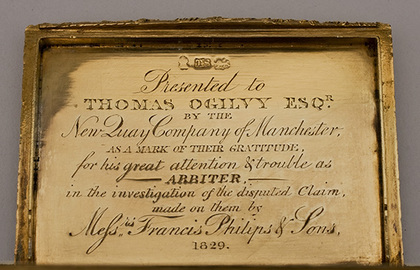 Presented to
THOMAS OGILVY ESQR
BY THE
New Quay Company of Manchester,
AS A MARK OF THEIR GRATITUDE,
for his great attention & trouble as
ARBITER,
in the investigation of the disputed Claim,
made on them by
Messrs Francis Philips & Sons,
1829.